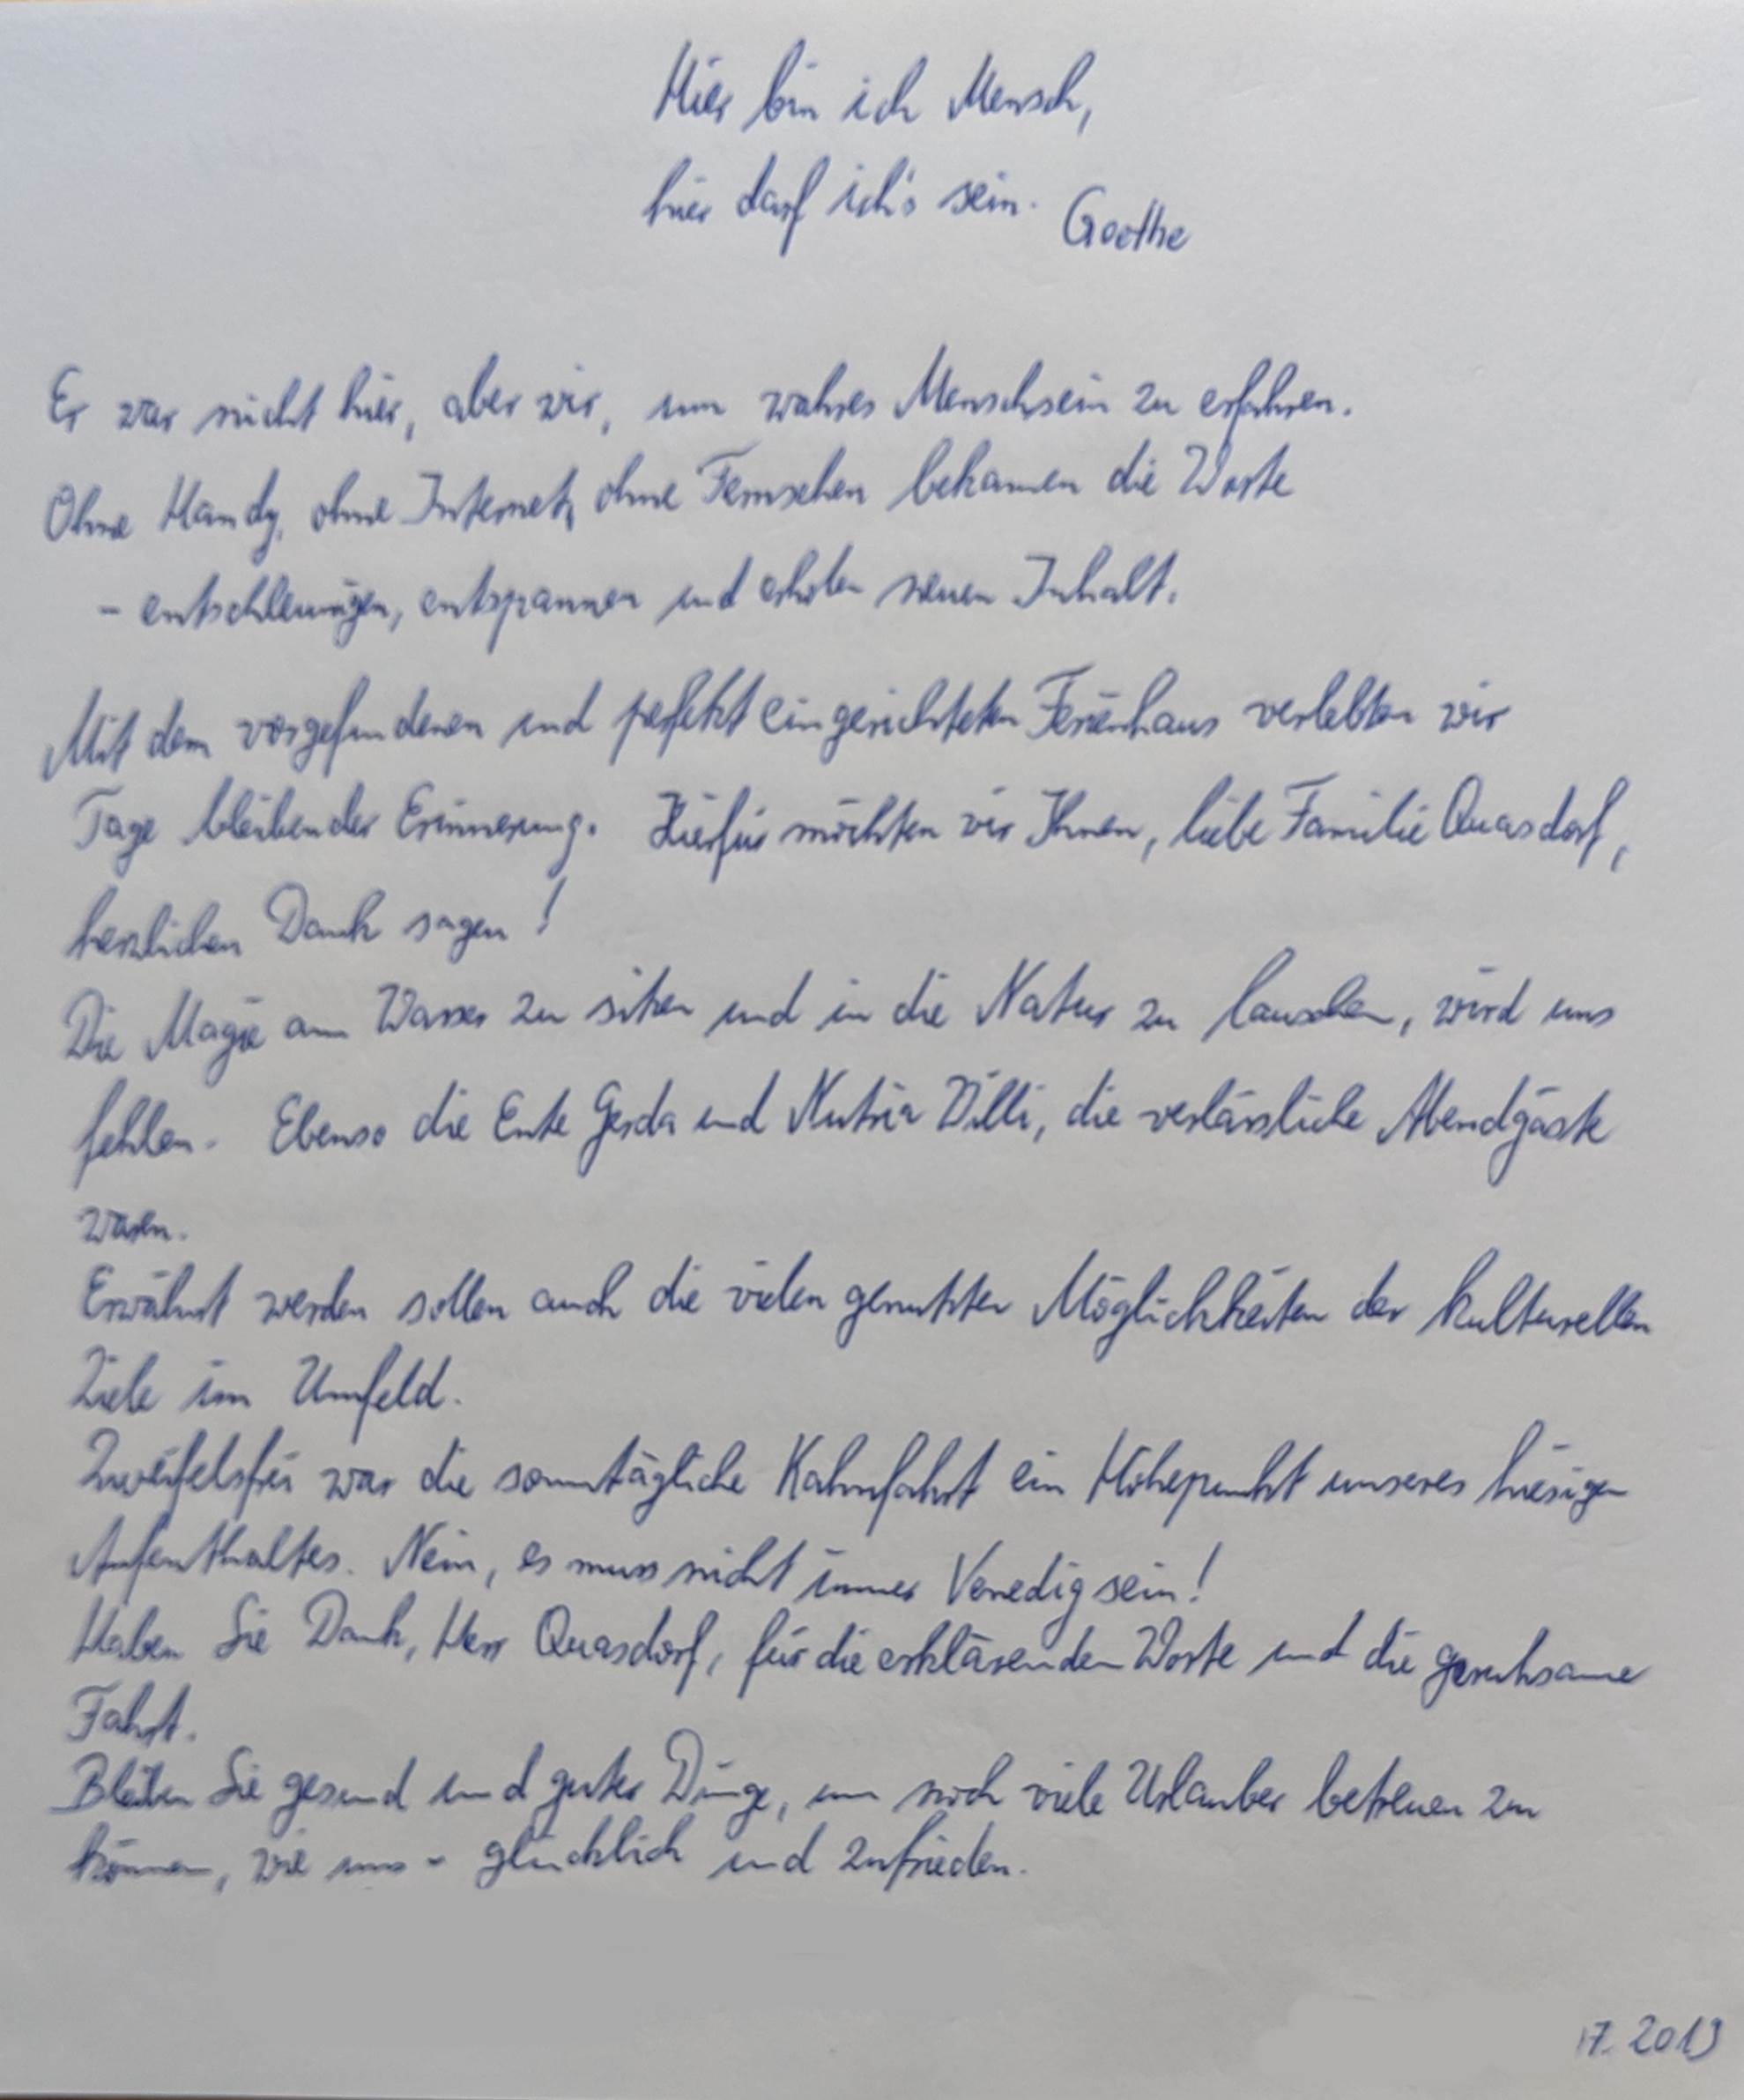 Hier bin ich Mensch,
hier darf ich's sein. Goethe
Er war nicht hier, aber wir, um wahres Menschsein zu erfahren.
Ohne Handy, ohne Internet, ohne Fernsehen bekamen die Worte
- entschleunigen, entspannen und erholen neuen Inhalt.
Mit dem vorgefundenen und perfekt eingerichteten Ferienhaus verlebten wir
Tage bleibender Erinnerung. Hierfür möchten wir Ihnen, liebe Familie Quasdorf,
herzlichen Dank sagen!
Die Magie am Wasser zu sitzen und in die Natur zu lauschen, wird uns
fehlen. Ebenso die Ente Gerda und Nutria Willi, die verlässliche Abendgäste
waren.
Erwähnt werden sollen auch die vielen genutzten Möglichkeiten der kulturellen
Ziele im Umfeld.
Zweifelsfrei war die sonntägliche Kahnfahrt ein Höhepunkt unseres hiesigen
Aufenthaltes. Nein, es muss nicht immer Venedig sein!
Haben Sie Dank, Herr Quasdorf, für die erklärenden Worte und die geruhsame
Fahrt.
Bleiben Sie gesund und guter Dinge, um noch viele Urlauber betreuen zu
können, wie uns - glücklich und zufrieden.
17. 2019